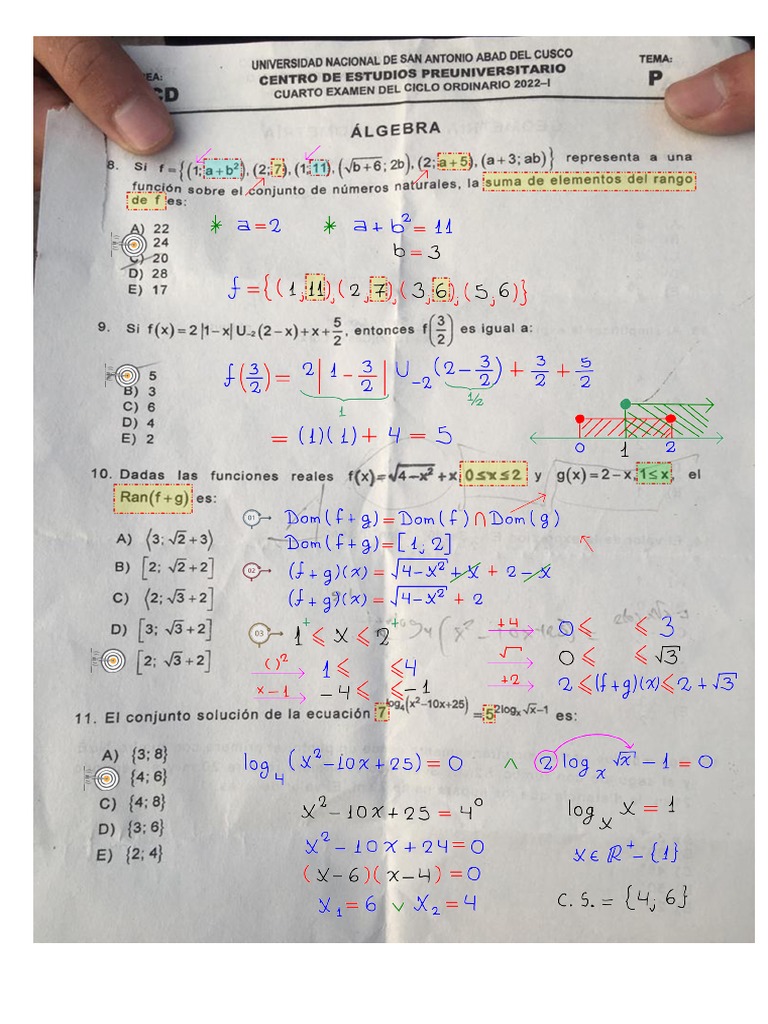 UNIVERSIDAD NACIONAL DE SAN ANTONIO ABAD DEL CUSCO
CENTRO DE ESTUDIOS PREUNIVERSITARIO
CUARTO EXAMEN DEL CICLO ORDINARIO 2022–I
EA:
CD
TEMA:
P
ÁLGEBRA
8. Si f={(1; a+b²), (2; 7), (1; 11), (√b+6; 2b), (2; a+5), (a+3; ab)} representa a una
función sobre el conjunto de números naturales, la suma de elementos del rango
de f es:
A) 22
24
C) 20
D) 28
E) 17
* a = 2 * a + b² = 11
b = 3
f = {(1, 11), (2, 7), (3, 6), (5, 6)}
9. Si f(x) = 2|1−x| U₋₂(2−x) + x + 5/2, entonces f(3/2) es igual a:
5
B) 3
C) 6
D) 4
E) 2
f(3/2) = 2|1 − 3/2| U₋₂(2 − 3/2) + 3/2 + 5/2
1 1/2
= (1)(1) + 4 = 5
0 1 2
10. Dadas las funciones reales f(x)=√4−x² + x, 0≤x≤2 y g(x) = 2−x, 1≤x, el
Ran(f+g) es:
A) ⟨3; √2+3⟩
B) [2; √2+2]
C) ⟨2; √3+2]
D) [3; √3+2]
[2; √3+2]
01 Dom(f+g) = Dom(f) ∩ Dom(g)
Dom(f+g) = [1; 2]
02 (f+g)(x) = √4−x² + x + 2 − x
(f+g)(x) = √4−x² + 2
03 1⁺ ≤ x ≤ 2⁺
( )² 1 ≤ ≤ 4
x − 1 −4 ≤ ≤ −1
+4 0 ≤ ≤ 3
√ 0 ≤ ≤ √3
+2 2 ≤ (f+g)(x) ≤ 2 + √3
11. El conjunto solución de la ecuación 7^log₄(x²−10x+25) = 5^2logₓ√x−1 es:
A) {3; 8}
{4; 6}
C) {4; 8}
D) {3; 6}
E) {2; 4}
log₄(x² − 10x + 25) = 0 ∧ 2 logₓ √x − 1 = 0
x² − 10x + 25 = 4⁰ logₓ x = 1
x² − 10x + 24 = 0 x ∈ ℝ⁺ − {1}
(x − 6)(x − 4) = 0
x₁ = 6 ∨ x₂ = 4 C. S. = {4; 6}